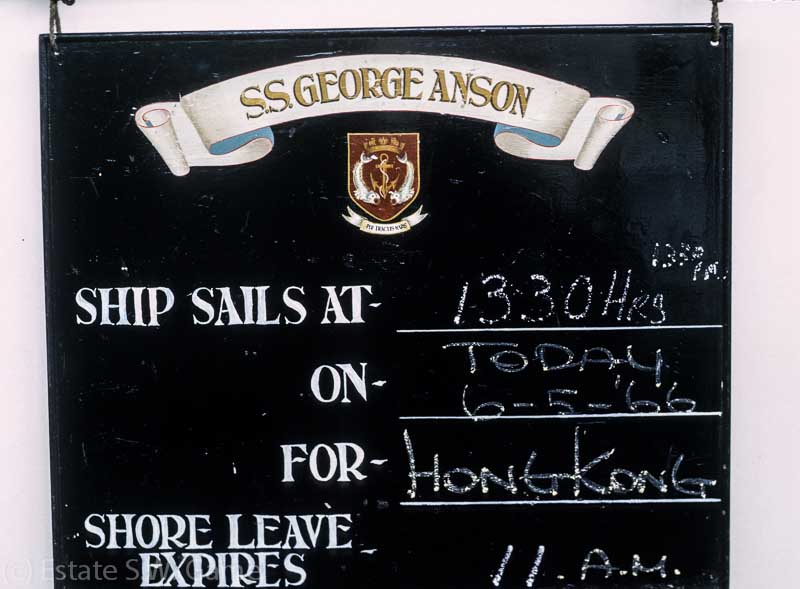 S.S. GEORGE ANSON
PER TRACTUS MARIS
P.M.
SHIP SAILS AT- 1330 Hrs
ON- TODAY
6-5-'66
FOR- HONG KONG
SHORE LEAVE
EXPIRES - 11. A.M.
© Estate S.W. Game